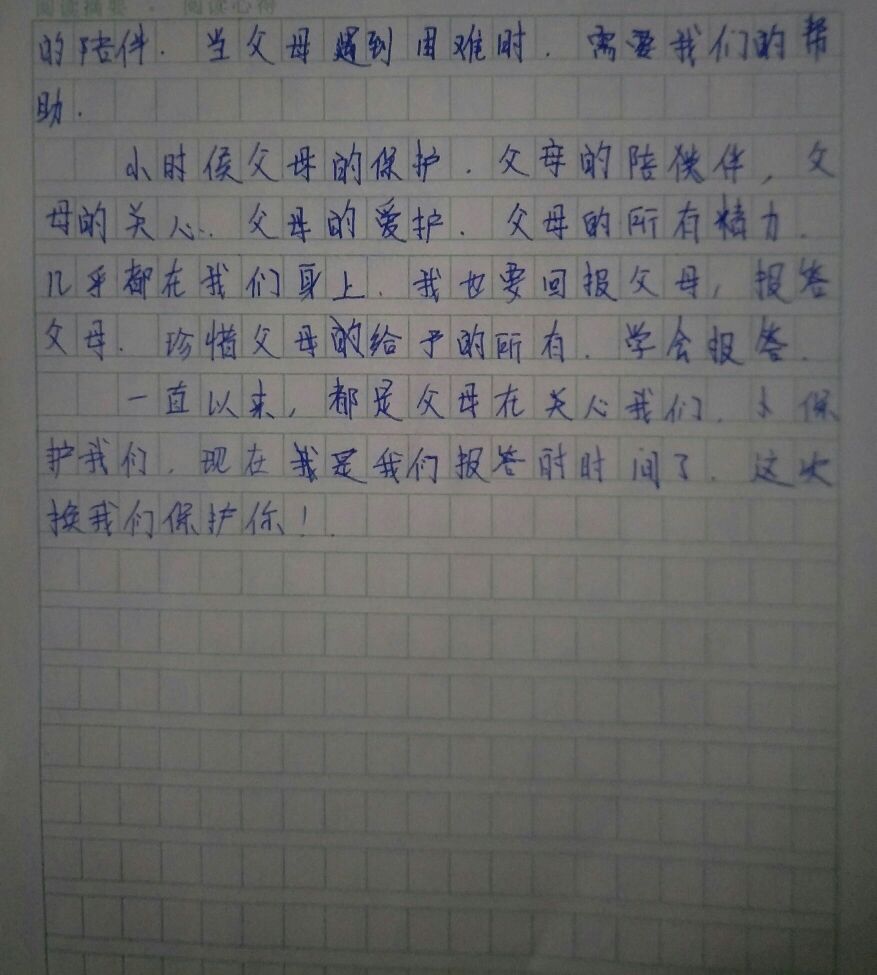 阅读摘要 · 阅读心得
的陪伴. 当父母遇到困难时. 需要我们的帮
助.
小时侯父母的保护. 父母的陪伴, 父
母的关心. 父母的爱护. 父母的所有精力.
几乎都在我们身上. 我也要回报父母, 报答
父母. 珍惜父母的给予的所有. 学会报答.
一直以来, 都是父母在关心我们. 保
护我们. 现在是我们报答的时间了. 这次
换我们保护你!